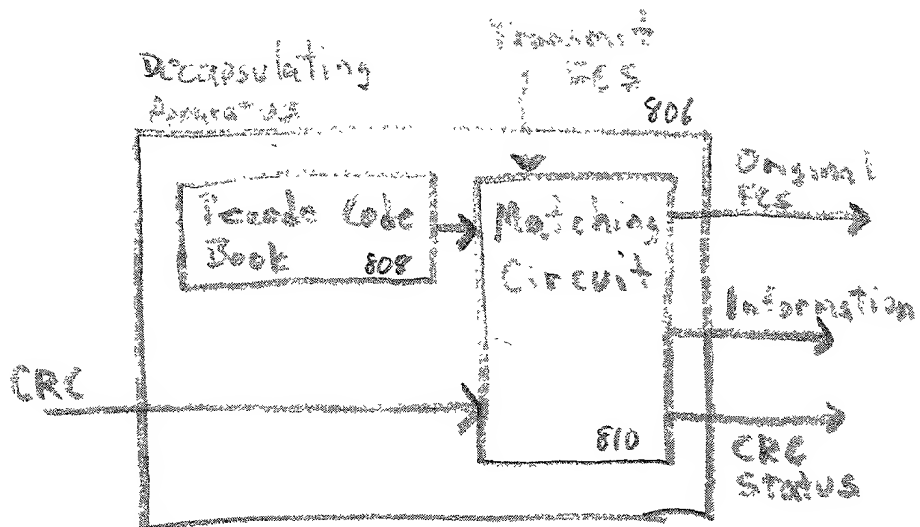 Decapsulating
Apparatus
Transmit
FCS
806
Decode Code
Book
808
Matching
Circuit
810
CRC
Original
FCS
Information
CRC
Status